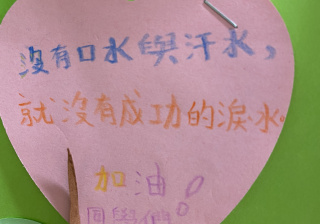 沒有口水與汗水，
就沒有成功的淚水。
加油！
同學們！